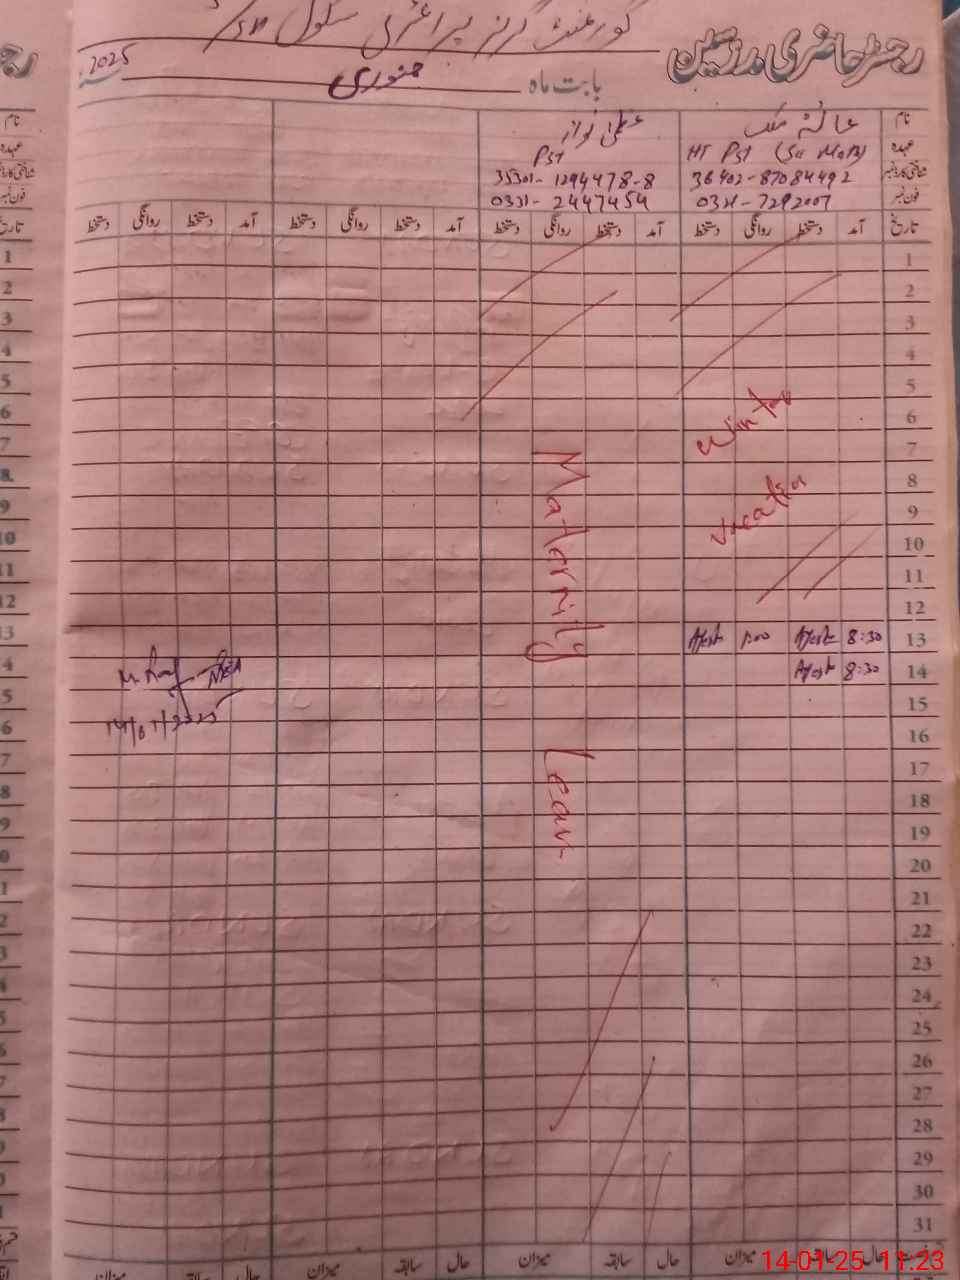 رجسٹر حاضری مدرسین
گورنمنٹ گرلز پرائمری سکول
بابت ماہ جنوری 2025
نام عائشہ ملک عظمیٰ نواز
عہدہ HT PST PST
شناختی کارڈ نمبر 36402-87084492 35301-1294478-8
فون نمبر 0321-7292007 0331-2447454
تاریخ آمد دستخط روانگی دستخط آمد دستخط روانگی دستخط آمد دستخط روانگی دستخط آمد دستخط روانگی دستخط
1
2
3
4
5
6
7
8
9
10
11
12
13 8:30
14 8:30
15
16
17
18
19
20
21
22
23
24
25
26
27
28
29
30
31
Winter
Maternity
Leav
14/01/2025
حال سابقہ میزان حال سابقہ میزان حال سابقہ میزان حال سابقہ میزان
14-01-25 11:23